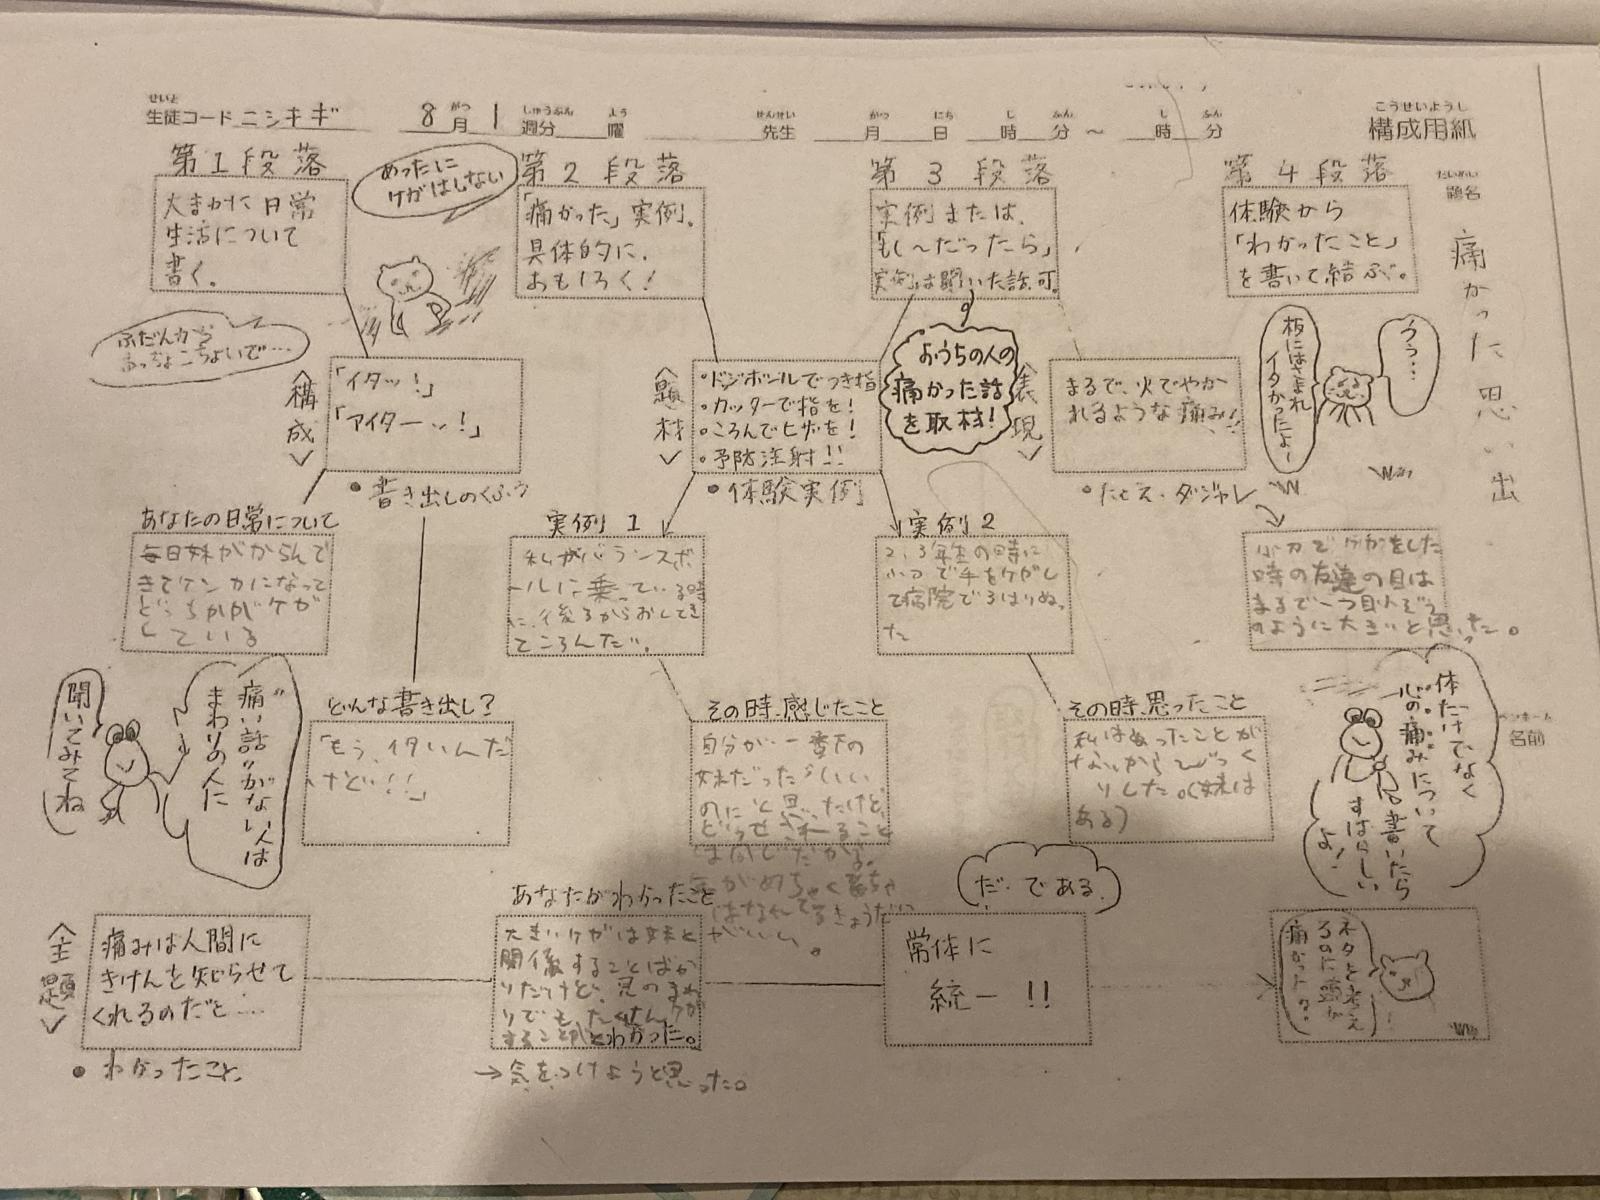 せいと
生徒コード ニシキギ 8月 1週分 曜 先生 月 日 時 分 ～ 時 分
がつ しゅうぶん よう せんせい がつ にち じ ふん じ ふん
こうせいようし
構成用紙
だいめい
題名
痛かった思い出
ペンネーム
名前
第1段落
大まかに日常
生活について
書く。
めったに
けがはしない
第2段落
「痛かった」実例。
具体的に、
おもしろく!
第3段落
実例または、
「もし～だったら」
実例は聞いた話可。
第4段落
体験から
「わかったこと」
を書いて結ぶ。
ふだんから
おっちょこちょいで…
〈構成〉
「イタッ!」
「アイターッ!」
・書き出しのくふう
〈題材〉
・ドッジボールでつき指
・カッターで指を!
・ころんでヒザを!
・予防注射!!
・体験実例
おうちの人の
痛かった話
を取材!
〈表現〉
まるで、火でやか
れるような痛み!
・たとえ・ダジャレ
板にはさまれ
イタかったよ～
うぅ…
あなたの日常について
毎日妹がからんで
きてケンカになって
どっちかがケガ
している
実例1
私がバランスボ
ールに乗っている時
に、後ろからおしてき
てころんだ。
実例2
2、3年生の時に
で手をケガし
て病院で3はりぬっ
た
でケガをした
時の友達の目は
まるで一つ目小ぞう
のように大きいと思った。
聞いてみてね
"痛い話"がない人は
まわりの人に
どんな書き出し?
「もう、イタいんだ
けどぃ!!」
その時、感じたこと
自分が、一番下の
妹だったらいい
のにと思ったけど、
どうせされること
は同じだから。
がめちゃくちゃ
はなれてるきょうだい
がいい。
その時、思ったこと
私はぬったことが
ないからびっく
りした。(妹は
ある)
体だけでなく
心の痛みについて
書いたら
すばらしい
よ!
〈主題〉
痛みは人間に
きけんを知らせて
くれるのだと…
・わかったこと
あなたがわかったこと
大きいケガは妹と
関係することばか
りだけど、兄のまわ
りでも、たくさんケガ
すること とわかった。
→気をつけようと思った。
だ・である
常体に
統一!!
ネタを考え
るのに頭が
痛かった。